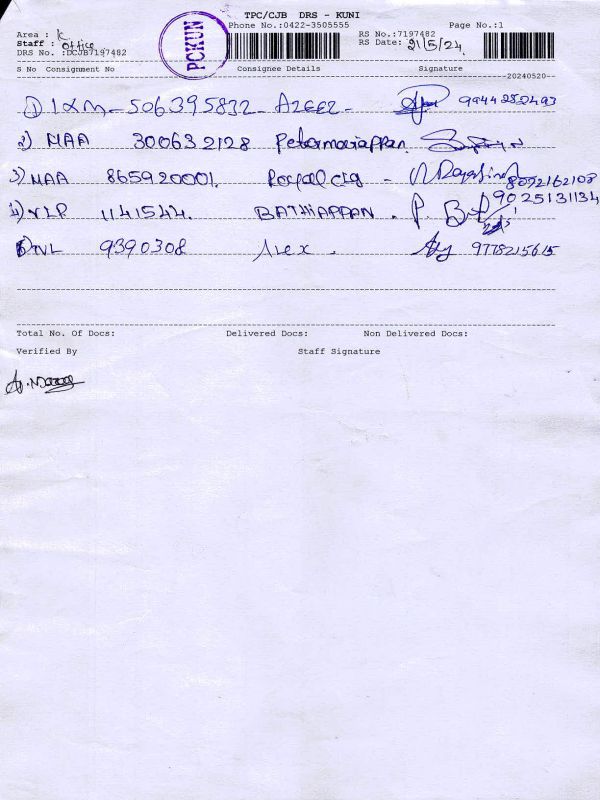 TPC/CJB DRS - KUNI
Phone No.:0422-3505555 Page No.:1
Area : K RS No.:7197482
Staff : Office RS Date: 21/5/24.
DRS No. :DCJB7197482
PCKUN
S No Consignment No Consignee Details Signature
20240520
1) IXM - 506395832 - AZEEZ - 9944252493
2) MAA 300632128 Petermariappan
3) MAA 865920001. Royal ctg - 8072162108
4) VLR 1141544. BATHIAPPAN . P. 9025131134
5) TVL 9390308 Alex . 9778215615
Total No. Of Docs: Delivered Docs: Non Delivered Docs:
Verified By Staff Signature